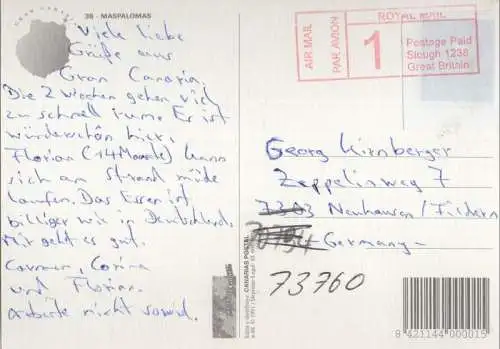 GRAN CANARIA
38 - MASPALOMAS
Viele liebe
Grüße aus
Gran Canaria.
Die 2 Wochen gehen viel
zu schnell rum. Es ist
wunderschön hier.
Florian (14 Monate) kann
sich am Strand müde
laufen. Das Essen ist
billiger wie in Deutschland.
Mir geht es gut.
Carmen, Corina
und Florian.
Arbeite nicht soviel.
AIR MAIL
PAR AVION
1
ROYAL MAIL
Postage Paid
Slough 1238
Great Britain
Georg Kirnberger
Zeppelinweg 7
7303 Neuhausen/Fildern
Germany
73760
CANARIAS POSTAL
8 421144 000015